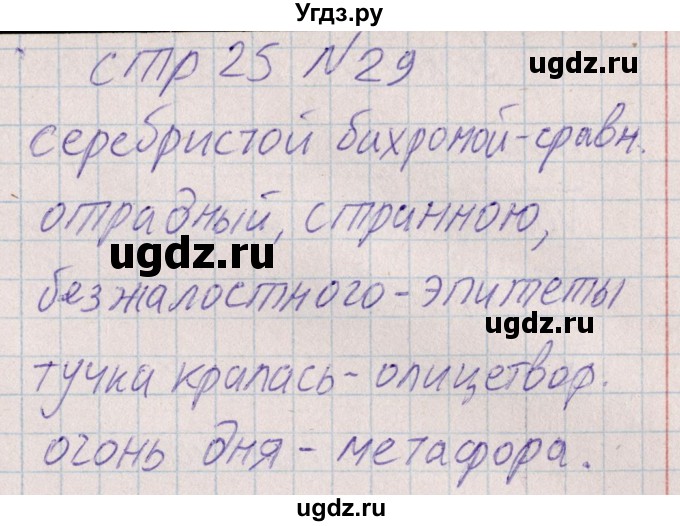 Угдз.ру
стр 25 №29
ugdz.ru
серебристой бахромой-сравн.
отрадный, странною,
ugdz.ru
безжалостного-эпитеты
ugdz.ru
тучка кралась-олицетвор.
огонь дня - метафора.
ugdz.ru